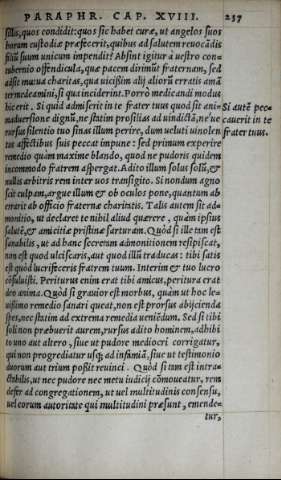 PARAPHR. CAP. XVIII. 237
sillis, quos condidit: quos sic habet curæ, ut angelos suos
horum custodiæ præfecerit, quibus ad salutem reuocādis
filiū suum unicum impendit? Absint igitur à uestro con-
tubernio offendicula, quæ pacem dirimūt fraternam, sed
adsit mutua charitas, quæ uicissim alij aliorū erratis amā
ter medeamini, si qua inciderint. Porrò medicandi modus
hic erit. Si quid admiserit in te frater tuus quod sit ani-
maduersione dignū, ne statim prosilias ad uindictā, ne ue
rursus silentio tuo sinas illum perire, dum ueluti uinolen
tus affectibus suis peccat impune: sed primum experire
remedio quàm maxime blando, quod ne pudoris quidem
incommodo fratrem aspergat. Adito illum solus solū, &
nullis arbitris rem inter uos transigito. Si nondum agno
scit culpam, argue illum & ob oculos pone, quantum ab
errarit ab officio fraternæ charitatis. Talis autem sit ad-
monitio, ut declaret te nihil aliud quærere, quàm ipsius
salutē, & amicitiæ pristinæ sarturam. Quòd si ille tam est
sanabilis, ut ad hanc secretam admonitionem resipiscat,
non est quod ulciscaris, aut quod illū traducas: tibi satis
est quòd lucrifeceris fratrem tuum. Interim & tuo lucro
cōsuluisti. Periturus enim erat tibi amicus, peritura erat
deo anima. Quòd si grauior est morbus, quàm ut hoc le-
uissimo remedio sanari queat, non est prorsus abijcienda
spes, nec statim ad extrema remedia ueniēdum. Sed si tibi
soli non præbuerit aurem, rursus adito hominem, adhibi
to uno aut altero, siue ut pudore mediocri corrigatur,
qui non progrediatur usq; ad infamiā, siue ut testimonio
duorum aut trium possit reuinci. Quòd si tam est intra-
ctabilis, ut nec pudore nec metu iudicij cōmoueatur, rem
defer ad congregationem, ut uel multitudinis consensu,
uel eorum autoritate qui multitudini præsunt, emende-
tur,
Si autē pec-
cauerit in te
frater tuus.